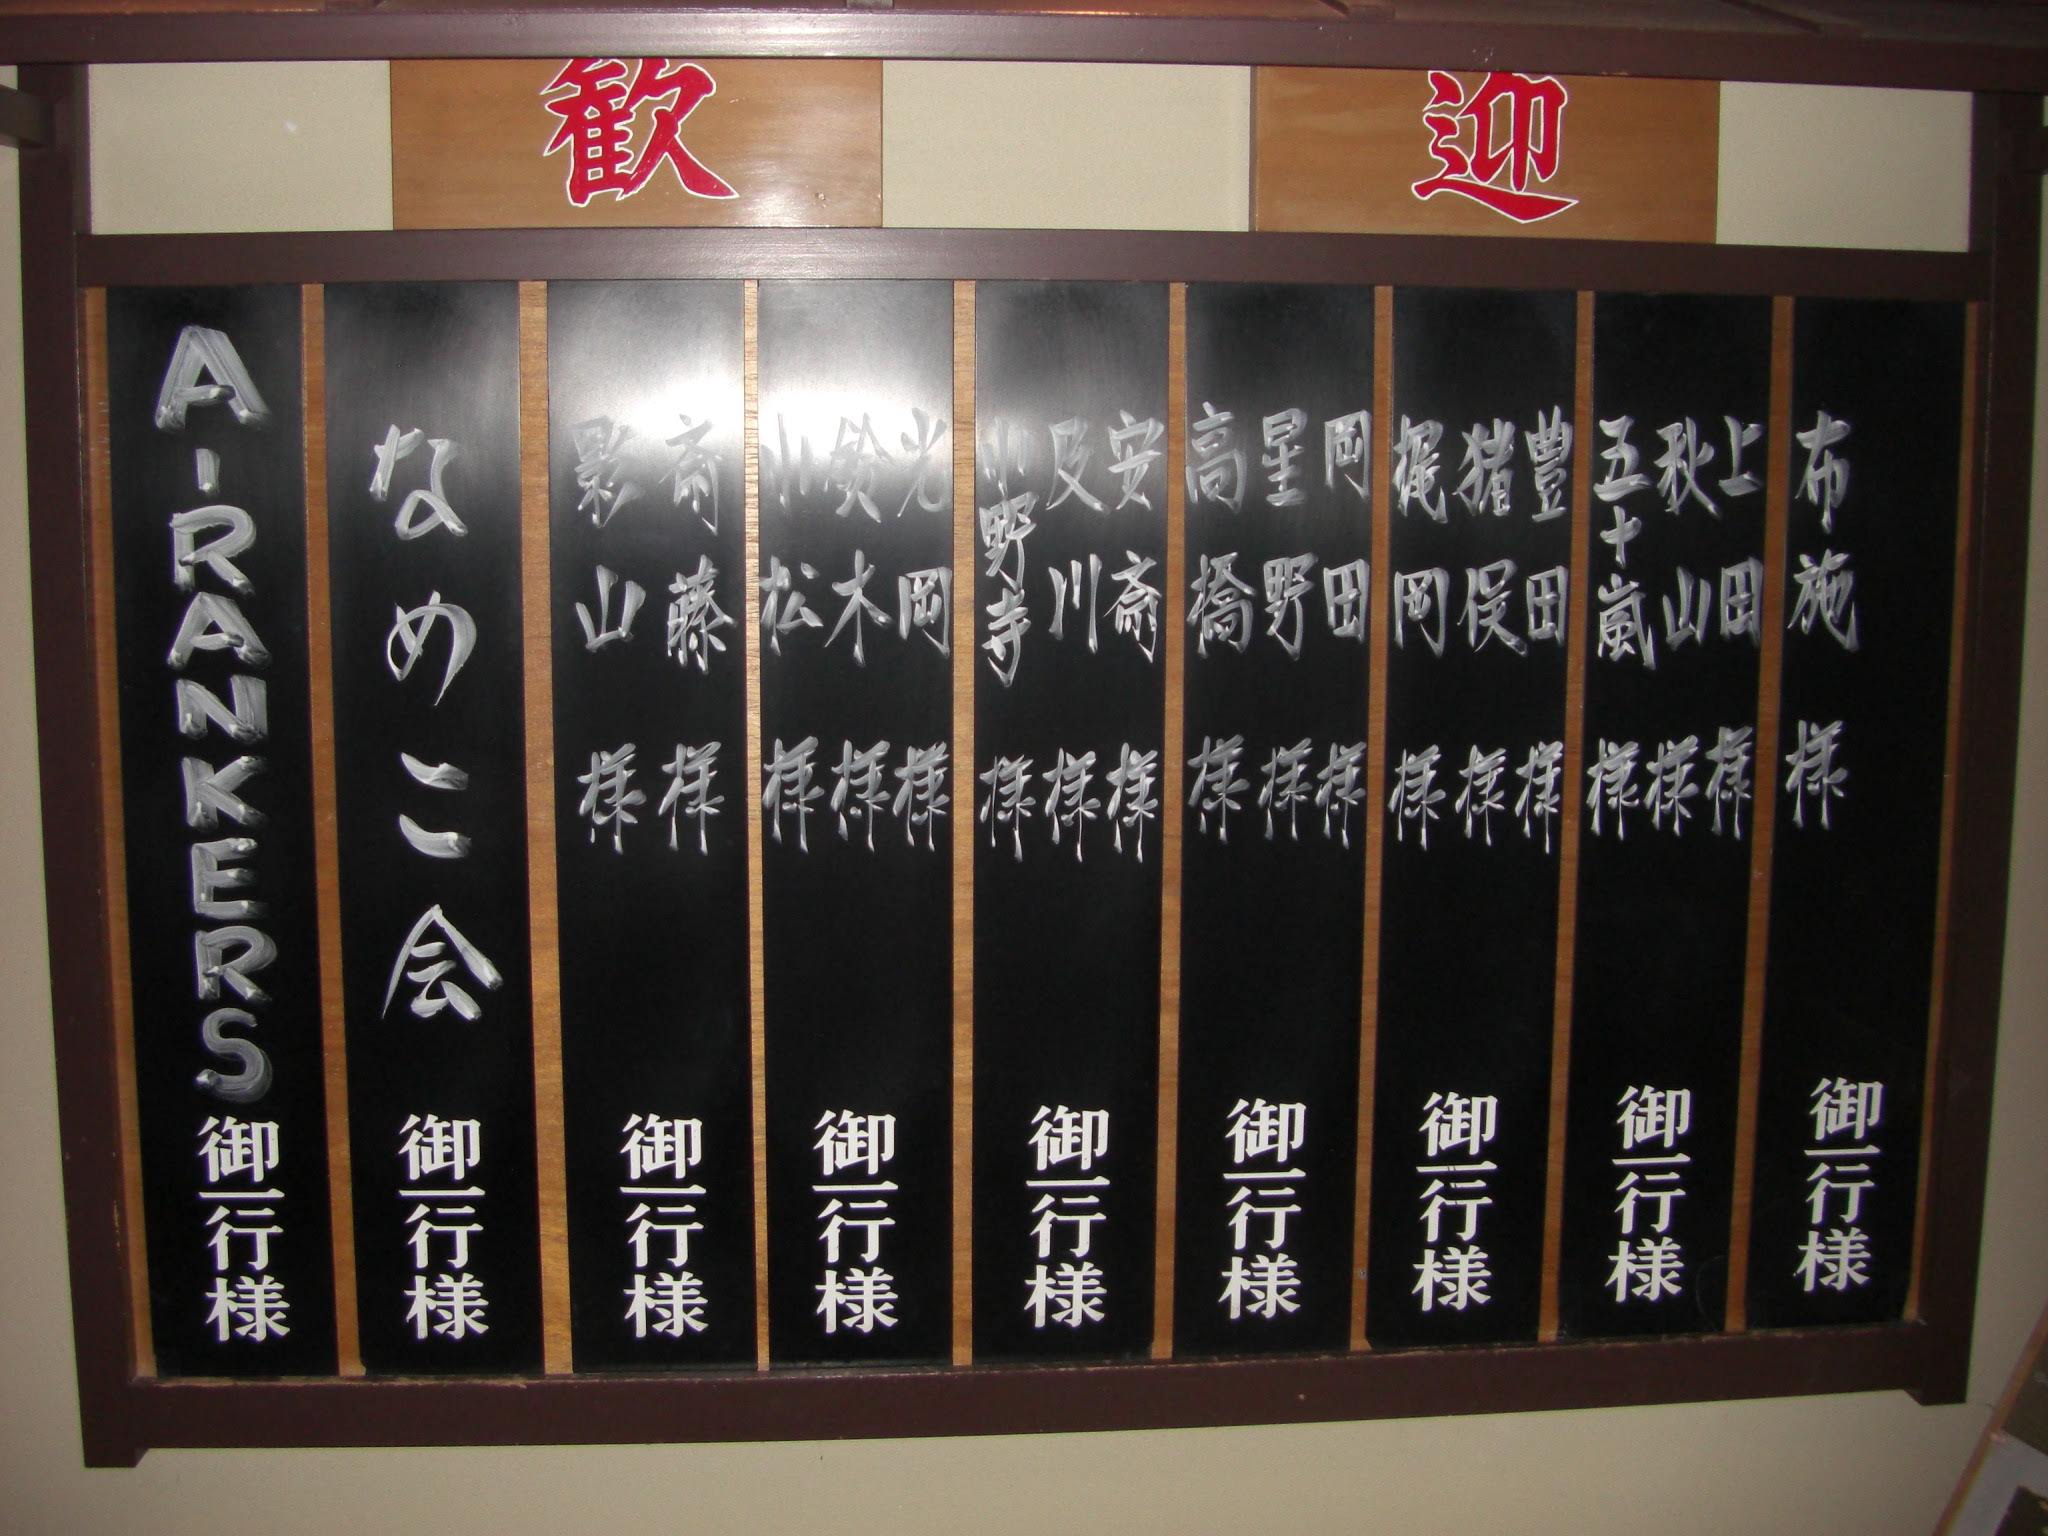 歓迎
布施様
御一行様
上岡様
秋山様
五十嵐様
御一行様
豊田様
猪俣様
梶岡様
御一行様
岡田様
星野様
高橋様
御一行様
安斎様
及川様
小野寺様
御一行様
光岡様
鈴木様
小松様
御一行様
斎藤様
影山様
御一行様
なめこ会
御一行様
A-RANKERS
御一行様